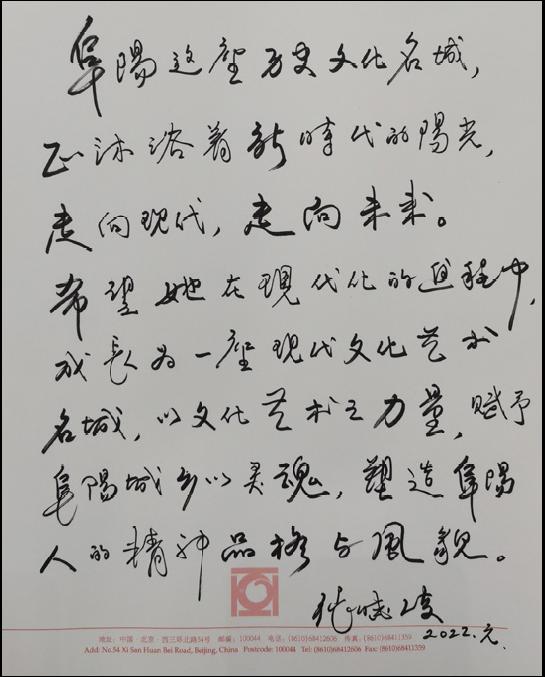 阜陽這座历史文化名城，
正沐浴着新時代的陽光，
走向现代，走向未来。
希望她在現代化的进程中，
成長为一座現代文化艺术
名城，以文化艺术之力量，赋予
阜陽城乡以灵魂，塑造阜陽
人的精神品格与風貌。
2022.元.
地址：中国·北京·西三环北路54号 邮编：100044 电话：(8610)68412606 传真：(8610)68411359
Add: No.54 Xi San Huan Bei Road, Beijing, China Postcode: 100044 Tel: (8610)68412606 Fax: (8610)68411359